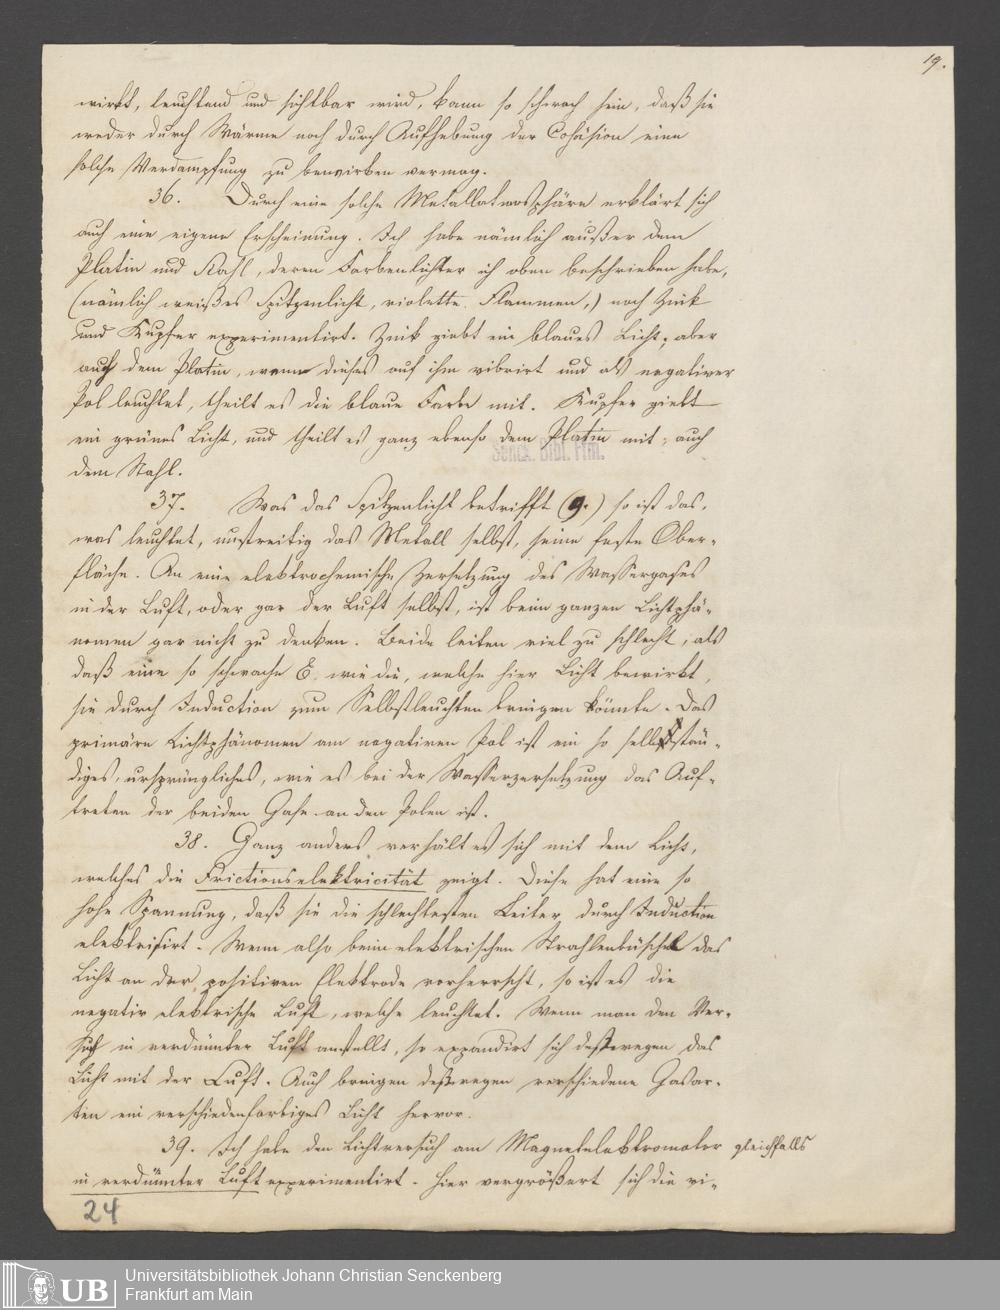 19.
wirkt, leuchtend und sichtbar wird, kann so schwach sein, daß sie
weder durch Wärme noch durch Aufhebung der Cohäsion eine
solche Verdampfung zu bewirken vermag.
36. Durch eine solche Metallatmosphäre erklärt sich
auch eine eigene Erscheinung. Ich habe nämlich außer dem
Platin und Stahl, deren Farbenlichter ich oben beschrieben habe,
(nämlich weißes Spitzenlicht, violette Flammen,) noch Zink
und Kupfer experimentirt. Zink giebt ein blaues Licht; aber
auch dem Platin, wenn dieses auf ihm vibrirt und als negativer
Pol leuchtet, theilt es die blaue Farbe mit. Kupfer giebt
ein grünes Licht, und theilt es ganz ebenso dem Platin mit; auch
dem Stahl.
Senck. Bibl. Ffm.
37. Was das Spitzenlicht betrifft (9.) so ist das,
was leuchtet, unstreitig das Metall selbst, seine feste Ober-
fläche. An eine elektrochemische Zersetzung des Wassergases
in der Luft, oder gar der Luft selbst, ist beim ganzen Lichtphä-
nomen gar nicht zu denken. Beide leiten viel zu schlecht, als
daß eine so schwache E. wie die, welche hier Licht bewirkt,
sie durch Induction zum Selbstleuchten bringen könnte. Das
primäre Lichtphänomen am negativen Pol ist ein so selbststän-
diges, ursprüngliches, wie es bei der Wasserzersetzung das Auf-
treten der beiden Gase an den Polen ist.
38. Ganz anders verhält es sich mit dem Licht,
welches die Frictionselektricität zeigt. Diese hat eine so
hohe Spannung, daß sie die schlechtesten Leiter durch Induction
elektrisirt. Wenn also beim elektrischen Strahlenbüschel das
Licht an der positiven Elektrode vorherrscht, so ist es die
negativ elektrische Luft, welche leuchtet. Wenn man den Ver-
such in verdünnter Luft anstellt, so expandirt sich deßwegen das
Licht mit der Luft. Auch bringen deßwegen verschiedene Gasar-
ten ein verschiedenfarbiges Licht hervor.
39. Ich habe den Lichtversuch am Magnetelektromotor gleichfalls
in verdünnter Luft experimentirt. Hier vergrößert sich die vi-
24
UB
Universitätsbibliothek Johann Christian Senckenberg
Frankfurt am Main